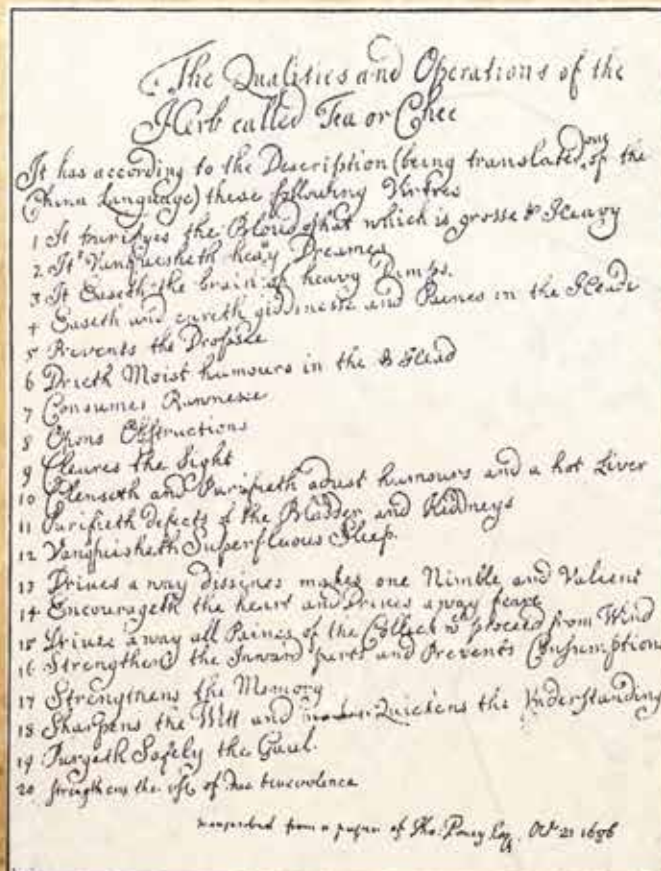 The Qualities and Operations of the
Herb called Tea or Chee
It has according to the Description (being translated out of the
China Language) these following Vertues
1 It purifyes the Bloud of that which is grosse & Heavy
2 It Vanquisheth heavy Dreames
3 It Easeth the brain of heavy Damps.
4 Easeth and cureth giddinesse and Paines in the Heade
5 Prevents the Dropsie
6 Drieth Moist humours in the Head
7 Consumes Rawnesse
8 Opens Obstructions
9 Cleares the Sight
10 Clenseth and Purifieth adust humours and a hot Liver
11 Purifieth defects of the Bladder and Kiddneys
12 Vanquisheth Superfluous Sleep.
13 Drives away dissines makes one Nimble and Valient
14 Encourageth the heart and Drives away feare
15 Drives away all Paines of the Collick wch proceed from Wind
16 Strengthens the Inward parts and Prevents Consumptions
17 Strengthens the Memory
18 Sharpens the Witt and Quickens the Understanding
19 Purgeth Safely the Gaul.
20 strengthens the use of due benevolence
transcribed from a paper of Tho: Povey Esq. Octr 20 1686